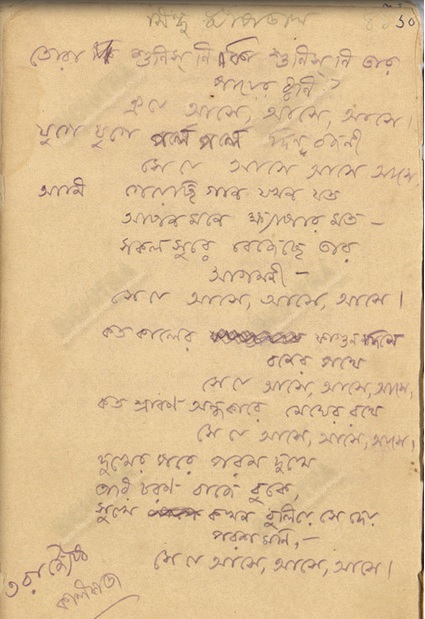 সিন্ধু
৫০
তোরা শুনিস্ নি কি শুনিস্ নি তার
পায়ের ধ্বনি?
ঐ যে আসে, আসে, আসে।
যুগে যুগে পলে পলে দিন রজনী
সে যে আসে আসে আসে,
আমি গেয়েছি গান যখন যত
আপন মনে ক্ষ্যাপার মত –
সকল সুরে বেজেছে তার
আগমনী –
সে যে আসে, আসে, আসে।
কত কালের ফাগুন দিনে
বনের পথে
সে যে আসে, আসে, আসে,
কত শ্রাবণ অন্ধকারে মেঘের রথে
সে যে আসে, আসে, আসে,
দুখের পরে পরম দুখে
তারি চরণ বাজে বুকে,
সুখে কখন বুলিয়ে সে দেয়
পরশমণি, –
সে যে আসে, আসে, আসে।
৩রা জ্যৈষ্ঠ